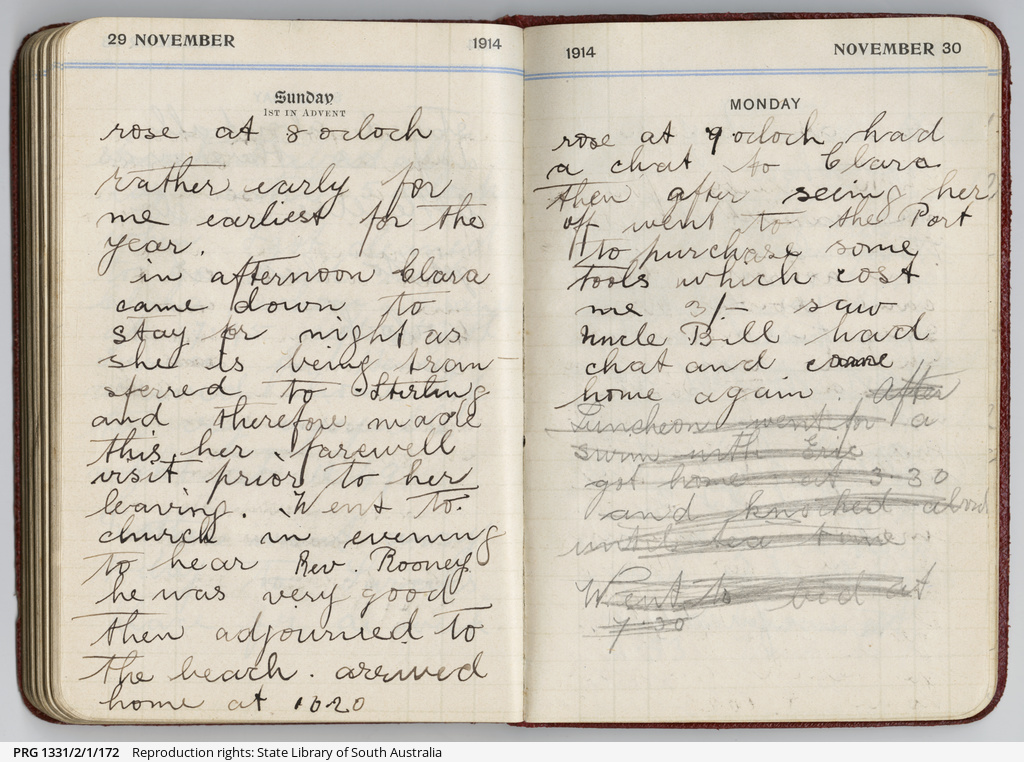 29 NOVEMBER 1914
Sunday
1ST IN ADVENT
rose at 8 ocloch
rather early for
me earliest for the
year.
in afternoon Clara
came down to
stay for night as
she is being tran
sferred to Stirling
and therefore made
this her farewell
visit prior to her
leaving. Went to
church in evening
to hear Rev. Rooney
he was very good
then adjourned to
the beach. arrived
home at 10 20
1914 NOVEMBER 30
MONDAY
rose at 9 ocloch had
a chat to Clara
then after seeing her
off went to the Port
to purchase some
tools which cost
me 3/- saw
uncle Bill had
chat and came
home again. after
Luncheon went for a
swim with Eric
got home at 3.30
and knocked about
until tea time
Went to bed at
7.30
PRG 1331/2/1/172 Reproduction rights: State Library of South Australia